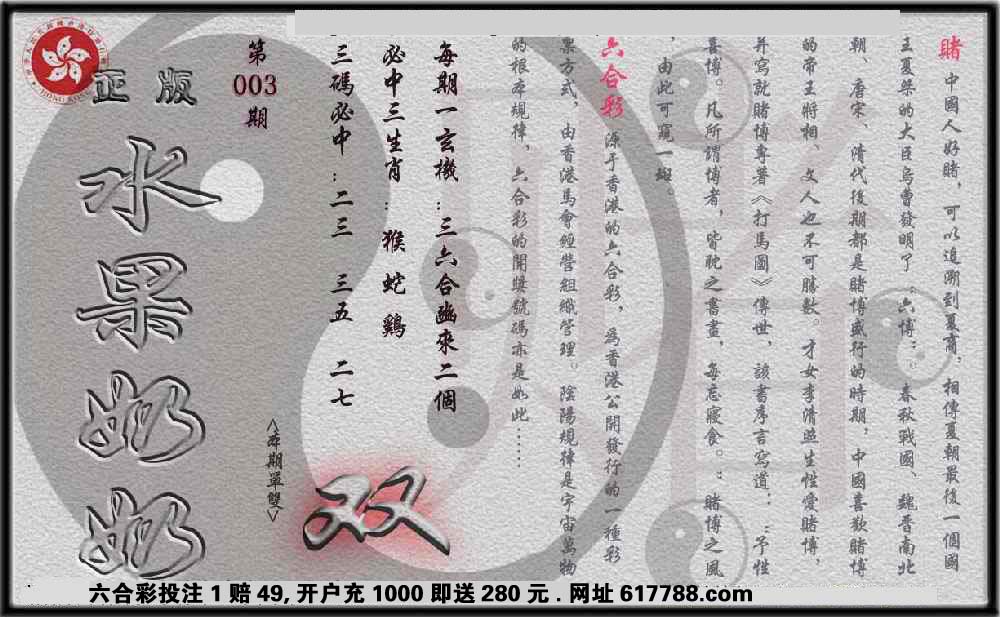 賭 中國人好賭，可以追溯到夏商，相傳夏朝最後一個國
王夏桀的大臣烏曹發明了“六博”，春秋戰國、魏晋南北
朝、唐宋、清代後期都是賭博盛行的時期，中國喜歡賭博
的帝王將相、文人也不可勝數，才女李清照生性愛賭博，
并寫就賭博專著《打馬圖》傳世，該書序言寫道：“予性
喜博。凡所謂博者，皆耽之晝畫，每忘寢食。”賭博之風
，由此可窺一斑。
六合彩 源于香港的六合彩，爲香港公開發行的一種彩
票方式，由香港馬會經營組織管理。陰陽規律是宇宙萬物
的根本規律，六合彩的開獎號碼亦是如此……
每期一玄機：三六合幽來二個
必中三生肖：猴 蛇 鷄
三碼必中：二三 三五 二七
第
003
期
<本期單雙>
双
正版
水果奶奶
六合彩投注1赔49,开户充1000即送280元.网址617788.com